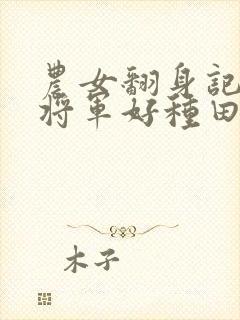 農女翻身記
將軍好種田
木子